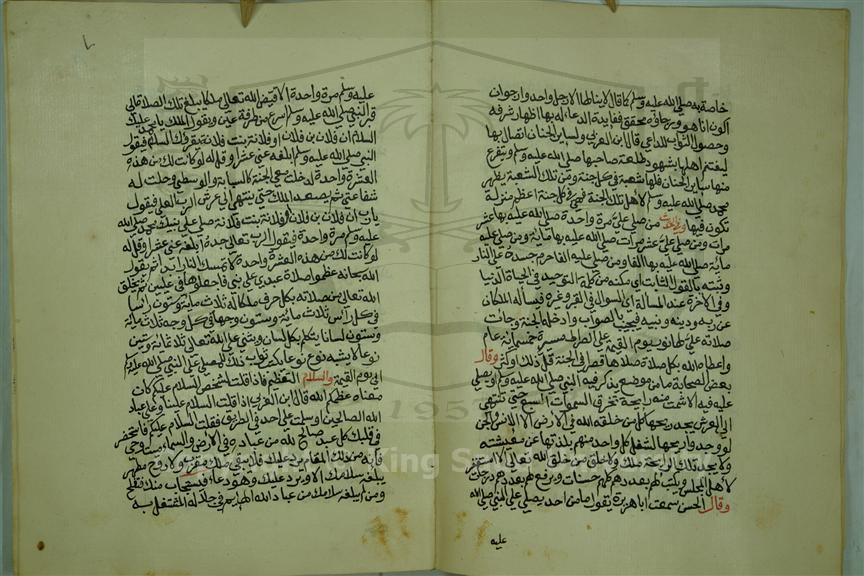 خاصة به صلى الله عليه وسلم كما قال لا ينالها الا رجل واحد وارجوان
اكون انا هو ورجاؤه محقق ففايدة الدعاء له بها اظهار شرفه
وحصول الثواب للداعي قال ابن العربي ولساير الجنان اتصال بها
ليتنعم اهلها بشهود طلعة صاحبها صلى الله عليه وسلم وتتفرع
منها ساير الجنان فلها شعبة في كل جنة ومن تلك الشعبة يظهر
محمد صلى الله عليه وسلم لاهل تلك الجنة فهي في كل جنة اعظم منزلة
تكون فيها من صلى علي مرة واحدة صلى الله عليه بها عشر
مرات ومن صلى علي عشر مرات صلى الله عليه بها ماية ومن صلى علي
ماية صلى الله عليه بها الفا ومن صلى علي الفا حرم جسده على النار
وثبته بالقول الثابت اي سكنه من كلمة التوحيد في الحياة الدنيا
وفي الآخرة عند المسالة اي السوال في القبر وغيره فيساله الملكان
عن ربه ودينه ونبيه فيجيب بالصواب وادخله الجنة وجاءت
صلاته علي لها نور يوم القيمة على الصراط مسيرة خمسماية عام
واعطاه الله بكل صلاة صلاها قصرا في الجنة قل ذلك او كثر وقال
بعض الصحابة ما من موضع يذكر فيه النبي صلى الله عليه وسلم او يصلى
عليه فيه الا شمت منه رايحة تخرق السموات السبع حتى تنتهي
الى العرش يجد ريحها كل من خلقه الله في الارض الا الانس والجن
لو وجدوا ريحها لشغل كل واحد منهم بلذتها عن معيشته
ولا يجد تلك الرايحة ملك ولا خلق من خلق الله تعالى الا استغفر
لاهل المجلس ويكتب لهم بعددهم كلهم حسنات ويرفع لهم بعددهم درجات
وقال الحسن سمعت ابا هريرة يقول ما من احد يصلي على النبي صلى الله
عليه
عليه وسلم مرة واحدة الا قيض الله تعالى ملكا يبلغ تلك الصلاة الى
قبر النبي صلى الله عليه وسلم اسرع من طرفة عين ويقول الملك يا محمد عليك
السلام ان فلان بن فلان او فلانة بنت فلانة يقروك السلام فيقول
النبي صلى الله عليه وسلم ابلغه عني عشرا وقل له لو كانت لك من هذه
العشرة واحدة لدخلت معي الجنة كالسبابة والوسطى وحلت له
شفاعتي ثم يصعد الملك حتى ينتهي الى عرش الرب العلي فيقول
يا رب ان فلان بن فلان او فلانة بنت فلانة صلى على نبيك محمد صلى الله
عليه وسلم مرة واحدة فيقول الرب تعالى جده ابلغه عني عشرا وقل له
لو كانت لك من هذه العشرة واحدة لا تمسك النار ابدا ثم يقول
الله سبحانه عظموا صلاة عبدي على نبي فاجعلوها في عليين ثم يخلق
الله تعالى من صلاته بكل حرف ملكا له ثلاث ماية وستون راسا
في كل راس ثلاث ماية وستون وجها في كل وجه ثلاث ماية
وستون لسانا يتكلم بكل لسان ويثني على الله تعالى ثلاثماية وستين
نوعا لا يشبه نوع نوعا يكتب ثواب ذلك للمصلي على النبي صلى الله عليه وسلم
الى يوم القيمة والسلام التعظيم فاذا قلت لشخص السلام عليكم كان
معناه عظمكم الله قال ابن العربي اذا قلت السلام علينا وعلى عباد
الله الصالحين او سلمت على احد في الطريق فقلت السلام عليكم فاستحضر
في قلبك كل عبد صالح لله من عباده في الارض والسماء وميت وحي
فانه من ذلك المقام يرد عليك فلا يبقى ملك مقرب ولا روح مطهر
يبلغه سلامك الا ويرد عليك وهو دعاء فيستجاب منك فتفلح
ومن لم يبلغه سلامك من عباد الله الهايم في جلاله المشتغل به